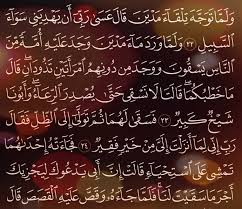 وَلَمَّا تَوَجَّهَ تِلْقَآءَ مَدْيَنَ قَالَ عَسَىٰ رَبِّىٓ أَن يَهْدِيَنِى سَوَآءَ
ٱلسَّبِيلِ ٢٢ وَلَمَّا وَرَدَ مَآءَ مَدْيَنَ وَجَدَ عَلَيْهِ أُمَّةً مِّنَ
ٱلنَّاسِ يَسْقُونَ وَوَجَدَ مِن دُونِهِمُ ٱمْرَأَتَيْنِ تَذُودَانِ قَالَ
مَا خَطْبُكُمَا قَالَتَا لَا نَسْقِى حَتَّىٰ يُصْدِرَ ٱلرِّعَآءُ وَأَبُونَا
شَيْخٌ كَبِيرٌ ٢٣ فَسَقَىٰ لَهُمَا ثُمَّ تَوَلَّىٰٓ إِلَى ٱلظِّلِّ فَقَالَ
رَبِّ إِنِّى لِمَآ أَنزَلْتَ إِلَىَّ مِنْ خَيْرٍ فَقِيرٌ ٢٤ فَجَآءَتْهُ إِحْدَىٰهُمَا
تَمْشِى عَلَى ٱسْتِحْيَآءٍ قَالَتْ إِنَّ أَبِى يَدْعُوكَ لِيَجْزِيَكَ
أَجْرَ مَا سَقَيْتَ لَنَا فَلَمَّا جَآءَهُۥ وَقَصَّ عَلَيْهِ ٱلْقَصَصَ قَالَ